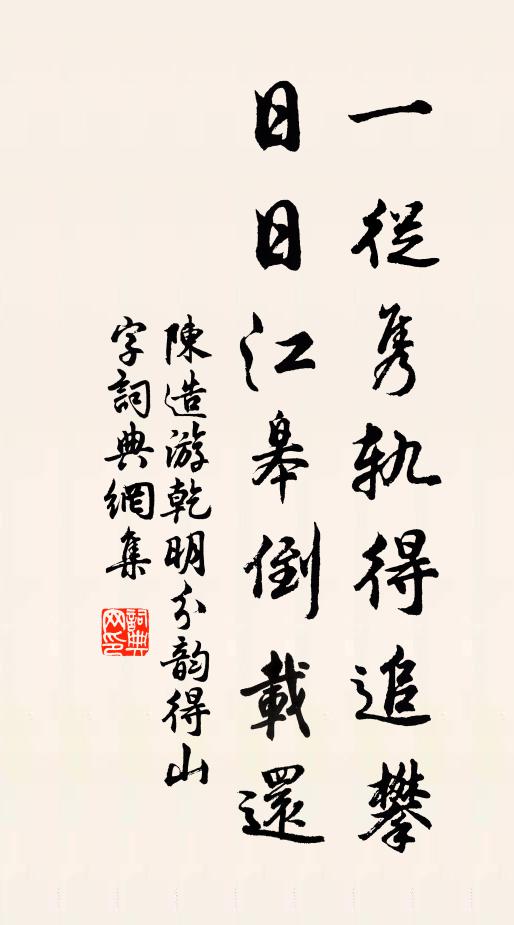 一從雋軌得追攀
日日江皋倒載還
陳造游乾明分韵得山
字詞典網集
詞典網印